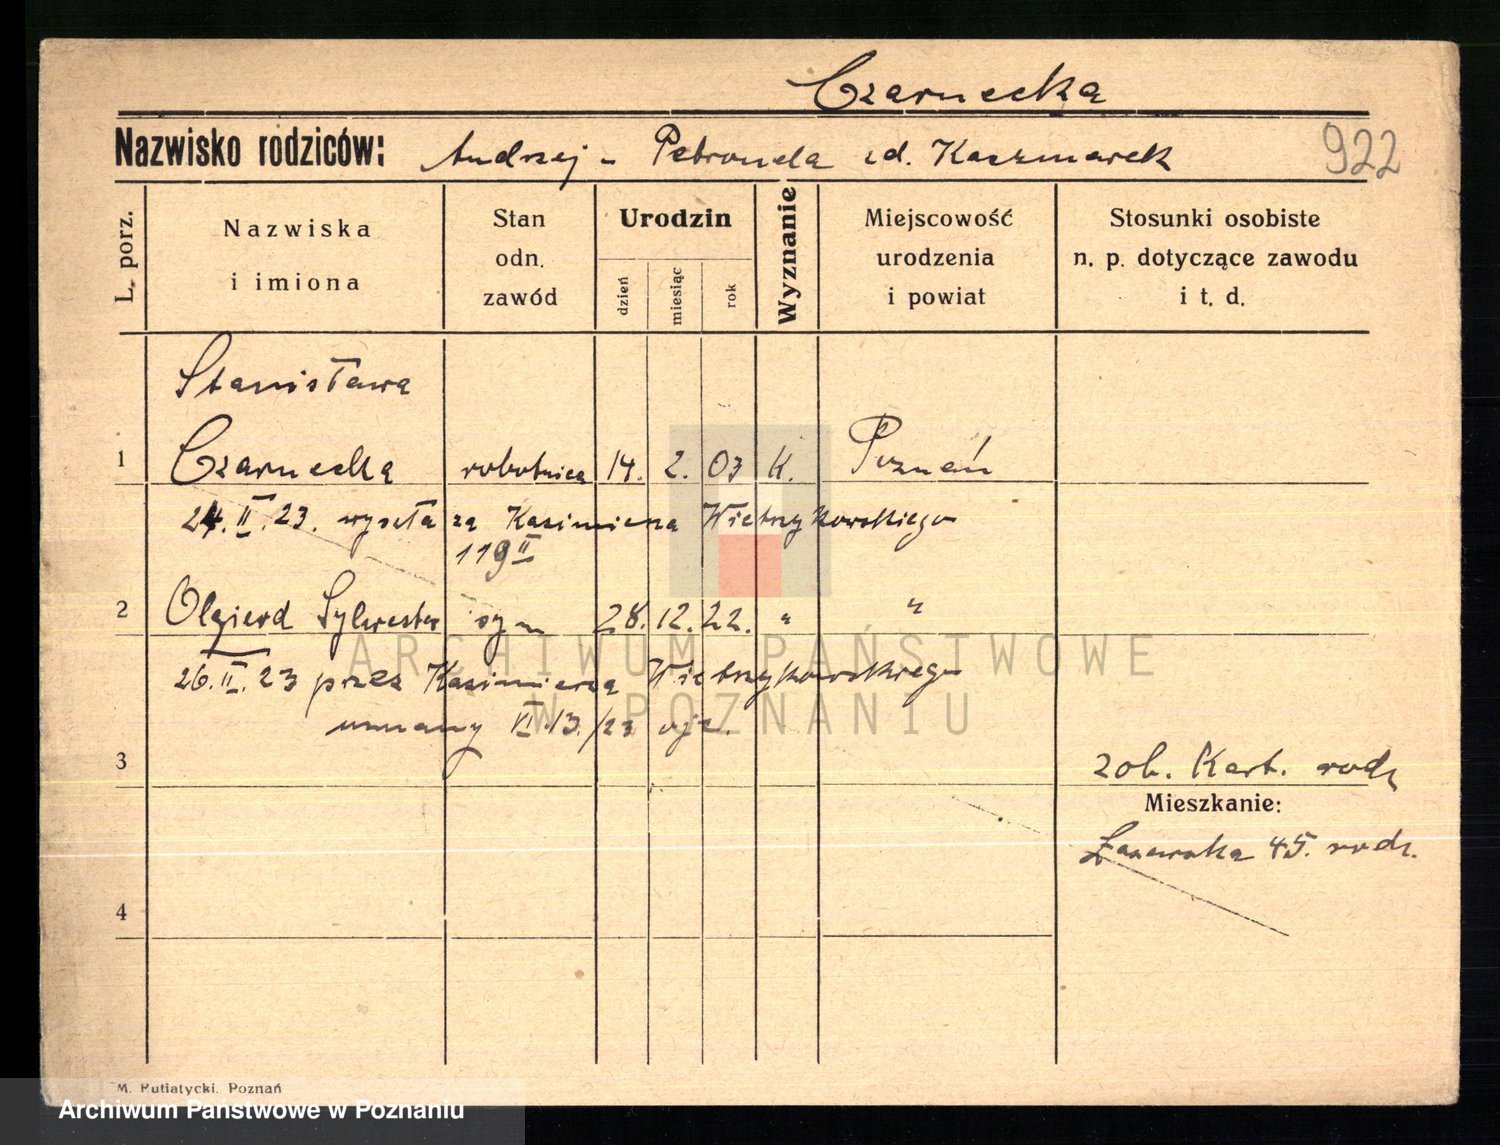 Czarnecka
Nazwisko rodziców: Andrzej - Petronela zd. Kaczmarek 922
L. porz.
Nazwiska
i imiona
Stan
odn.
zawód
Urodzin
dzień
miesiąc
rok
Wyznanie
Miejscowość
urodzenia
i powiat
Stosunki osobiste
n. p. dotyczące zawodu
i t. d.
Stanisława
1 Czarnecka robotnica 14. 2. 03 K. Poznań
24. II. 23. wyszła za Kazimierza Wietrzykowskiego
119 II
2 Olgierd Sylwester syn 28. 12. 22. " "
26. II. 23 przez Kazimierza Wietrzykowskiego
uznany VI. 13./23
3 zob. Kart. rodz
Mieszkanie:
Łazarska 45. rodz.
4
M. Putiatycki. Poznań
ARCHIWUM PAŃSTWOWE
W POZNANIU
Archiwum Państwowe w Poznaniu